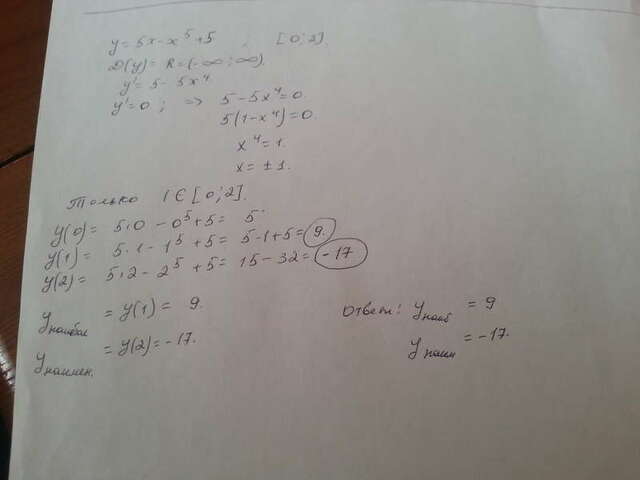 y = 5x - x⁵ + 5 ; [0; 2].
D(y) = R = (-∞; ∞).
y' = 5 - 5x⁴.
y' = 0 ; => 5 - 5x⁴ = 0.
5(1 - x⁴) = 0.
x⁴ = 1.
x = ± 1.
Только 1 ∈ [0; 2].
y(0) = 5·0 - 0⁵ + 5 = 5.
y(1) = 5·1 - 1⁵ + 5 = 5 - 1 + 5 = 9.
y(2) = 5·2 - 2⁵ + 5 = 15 - 32 = -17.
yнаибол = y(1) = 9.
yнаимен. = y(2) = -17.
Ответ: yнаиб = 9
yнаим = -17.